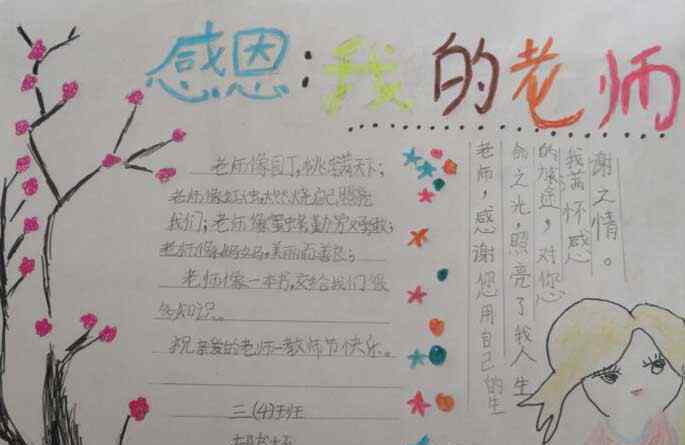 感恩：我的老师
老师像园丁，桃李满天下；
老师像红烛燃烧自己，照亮
我们；老师像蜜蜂勤劳又勇敢；
老师像妈妈，美丽而善良；
老师像一本书，交给我们很
多知识。
祝亲爱的老师—教师节快乐。
三(4)班
老师，感谢您用自己的生
命之光，照亮了我人生
的旅途，对您
我满怀感
谢之情。